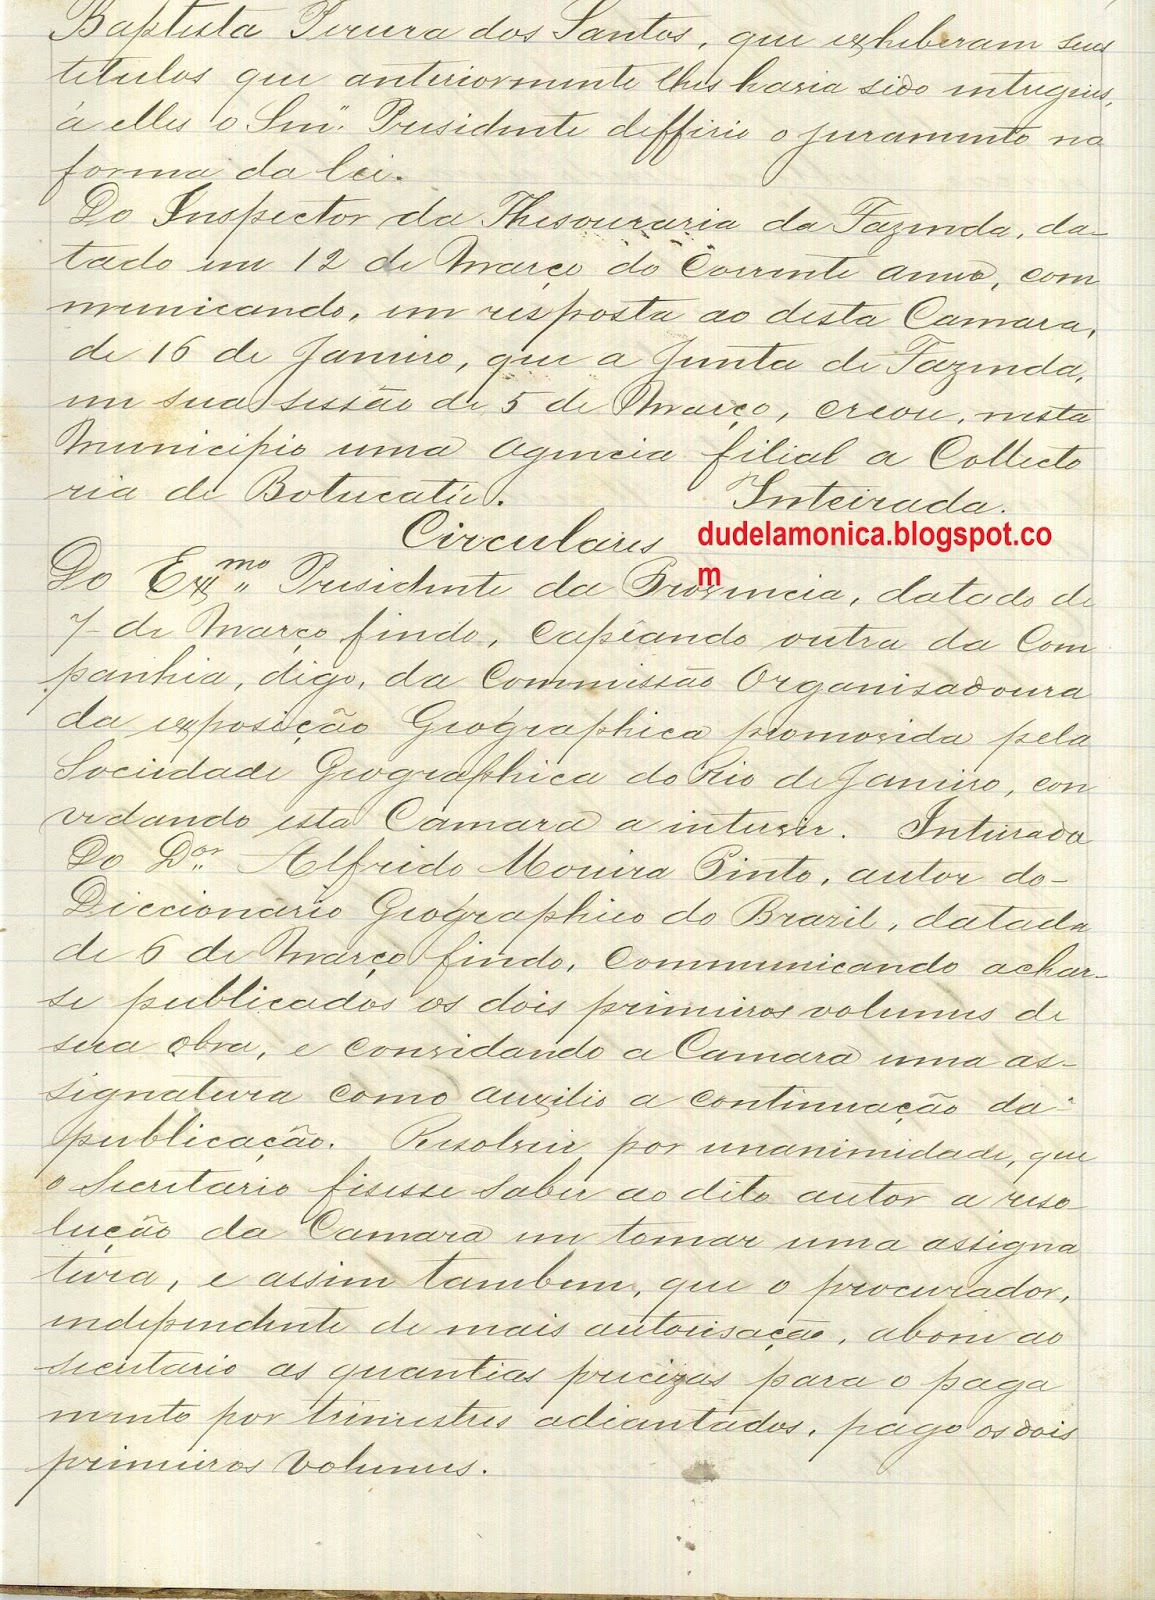 Baptista Pereira dos Santos, que exhiberam seus
titulos que anteriormente lhes havia sido entregues,
á elles o Snr. Presidente deffirio o juramento na
forma da lei.
Do Inspector da Thesouraria da Fazenda, da-
tado em 12 de Março do Corrente anno, com
municando, em resposta ao desta Camara,
de 16 de Janeiro, que a Junta de Fazenda,
em sua sessão de 5 de Março, creou, nesta
Municipio uma Agencia filial a Collecto
ria de Botucatú. Inteirada.
Circulares
dudelamonica.blogspot.co
m
Do Exmo Presidente da Provincia, datado de
7 de Março findo, capeando outra da Com
panhia, digo, da Commissão Organisadoura
da exposição Geographica promovida pela
Sociedade Geographica do Rio de Janeiro, con
vidando esta Camara a intervir. Inteirada
Do Dor Alfredo Moreira Pinto, autor do-
Diccionario Geographico do Brazil, datada
de 6 de Março findo, communicando achar-
se publicados os dois primeiros volumes de
sua obra, e convidando a Camara uma as-
signatura como auxilio a continuação da
publicação. Resolveu por unanimidade, que
o Secretario fisesse saber ao dito autor a reso-
lução da Camara em tomar uma assigna
tura, e assim tambem, que o procurador,
independente de mais autorisação, abone ao
secretario as quantias precizas para o paga
mento por trimestres adiantados, pago os dois
primeiros volumes.